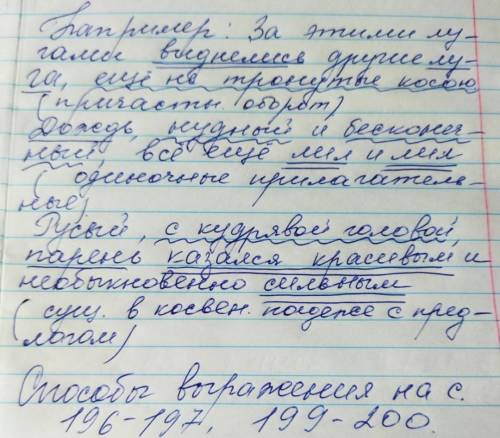 Например: За этими лу-
гами виднелись другие лу-
га, ещё не тронутые косою
(причастн. оборот)
Дождь, нудный и бесконеч-
ный, всё ещё лил и лил
(одиночные прилагатель-
ные)
Русый, с кудрявой головой,
парень казался красивым и
необыкновенно сильным
(сущ. в косвен. падеже с пред-
логом)
Способы выражения на с.
196-197, 199-200.